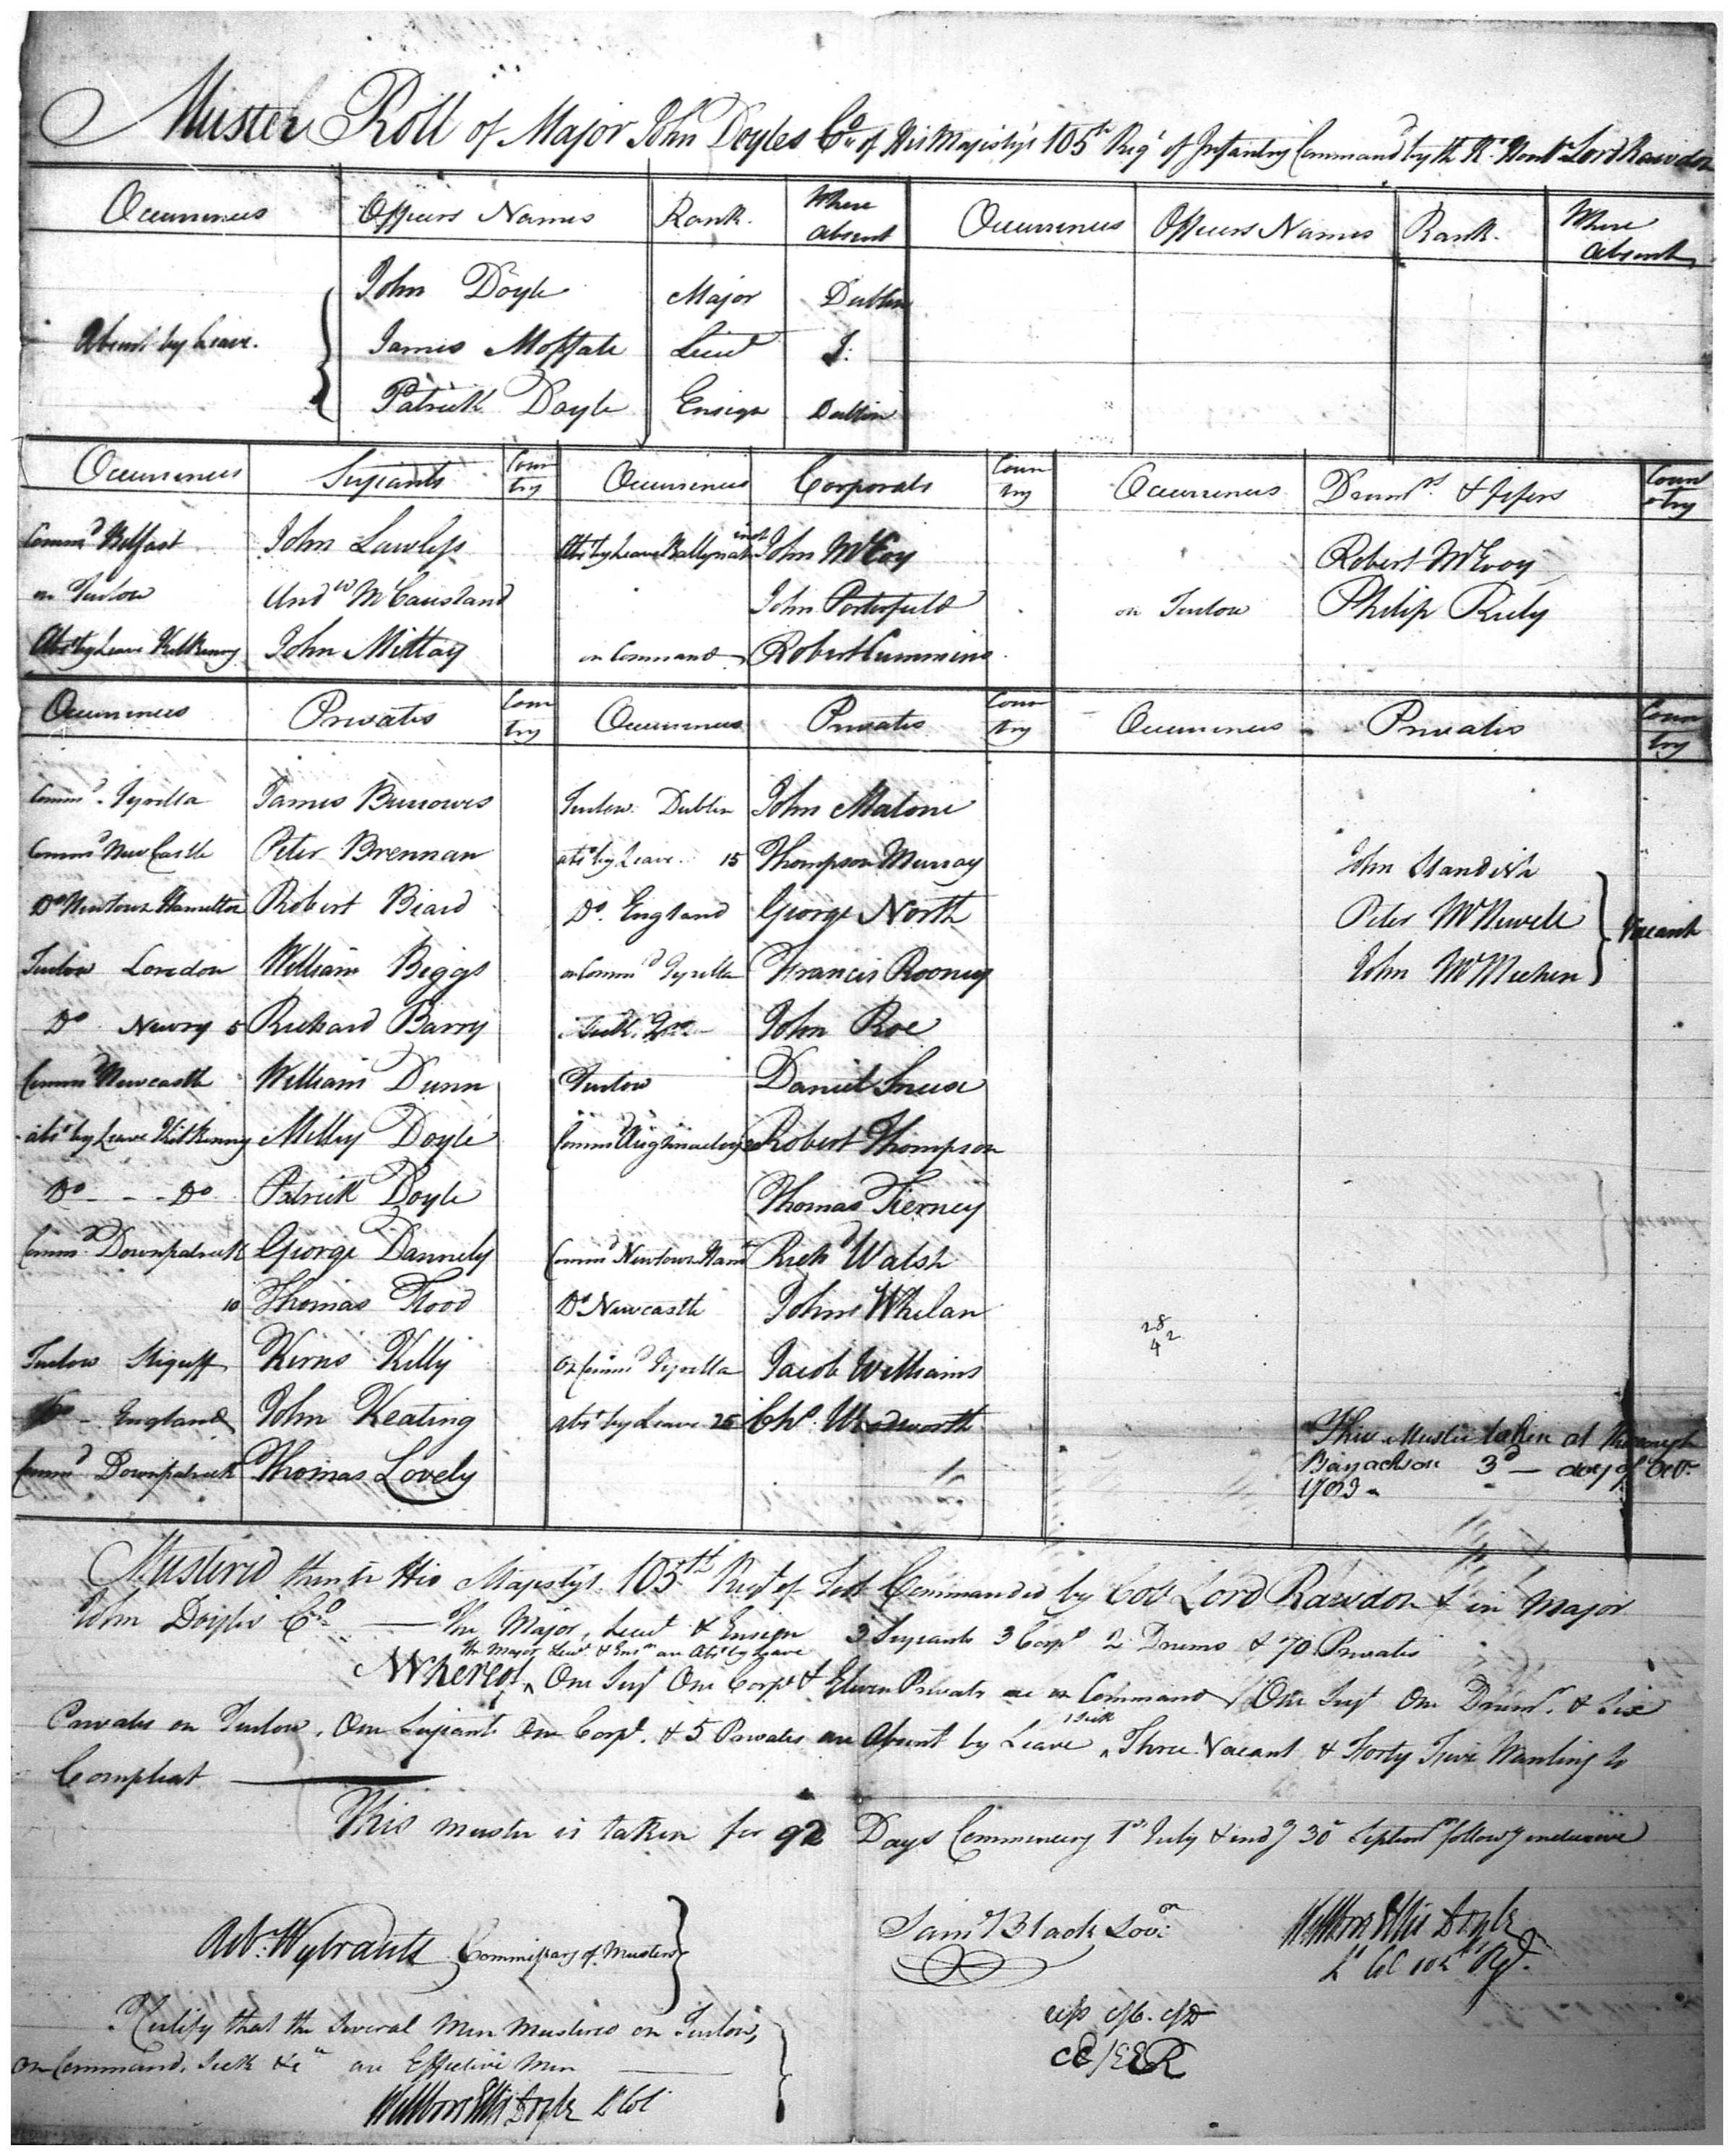 Muster Roll of Major John Doyles Co. of His Majesty's 105th Regt of Infantry Command by the Rt. Honble Lord Rawdon
Occurrences Officers Names Rank. Where absent Occurrences Officers Names Rank. Where absent
John Doyle Major Dublin
Absent by Leave. James Moffatt Lieut
Patrick Doyle Ensign Dublin
Occurrences Serjeants Coun try Occurrences Corporals Coun try Occurrences Drumrs. & fifers Coun try
Commd Belfast John Lawless Abst by Leave John McCoy Robert McEvoy
on Furlow Andw McCausland John Porterfield on Furlow Philip Riely
Abst by Leave Kilkenny John Mittay on Command Robert Cummins
Occurrences Privates Coun try Occurrences Privates Coun try Occurrences Privates Coun try
Commd. Tyrella James Burrowes Furlow Dublin John Malone
Commd New Castle Peter Brennan abst by Leave 15 Thompson Murray John Standish
Do Newtown Hamelton Robert Beard Do. England George North Peter McNewell Vacant
Furlow London William Biggs on Commd Tyrella Francis Rooney John McMechen
Do Newry 5 Richard Barry Sick John Roe
Commd Newcastle William Dunn Furlow Daniel
abst by Leave Kilkenny Doyle Commd Robert Thompson
Do - - - Do Patrick Doyle Thomas Tierney
Commd. Downpatrick George Dannely Commd Newtown Ham Richd Walsh
10 Thomas Flood Do Newcastle John Whelan
28
42
Furlow Kerns Kelly on Commd Tyrella Jacob Williams
Do - England John Keating abst by Leave 25 Chs. Wadsworth
Commd Downpatrick Thomas Lovely
This Muster taken at
3d - day of Octr.
Mustered then in His Majesty's 105th Regt of Foot Commanded by Col Lord Rawdon & in Major
John Doyles Co. — The Major, Lieut & Ensign 3 Serjeants 3 Corpl 2 Drums & 70 Privates
the Major Lieut & Ensn are Abst by Leave
Whereof ^ One Serjt One Corpl & Eleven Privats are on Command One Serjt One Drumr. & Six
Privates on Furlow, One Serjeant One Corpl. & 5 Privates are Absent by Leave ^ 1 Sick Three Vacant & Forty Five Wanting to
Compleat
This muster is taken for 92 Days Commencing 1st July & endg 30 Septemr followg inclusive
Robt. Wybrants Commissary of Musters
Saml Black Sovn.
Wellbore Ellis Doyle
Lt Col 105th Regt.
I Certify that the several Men Mustered on Furlow,
on Command, Sick &c are Effective Men
Wellbore Ellis Doyle Lt Col